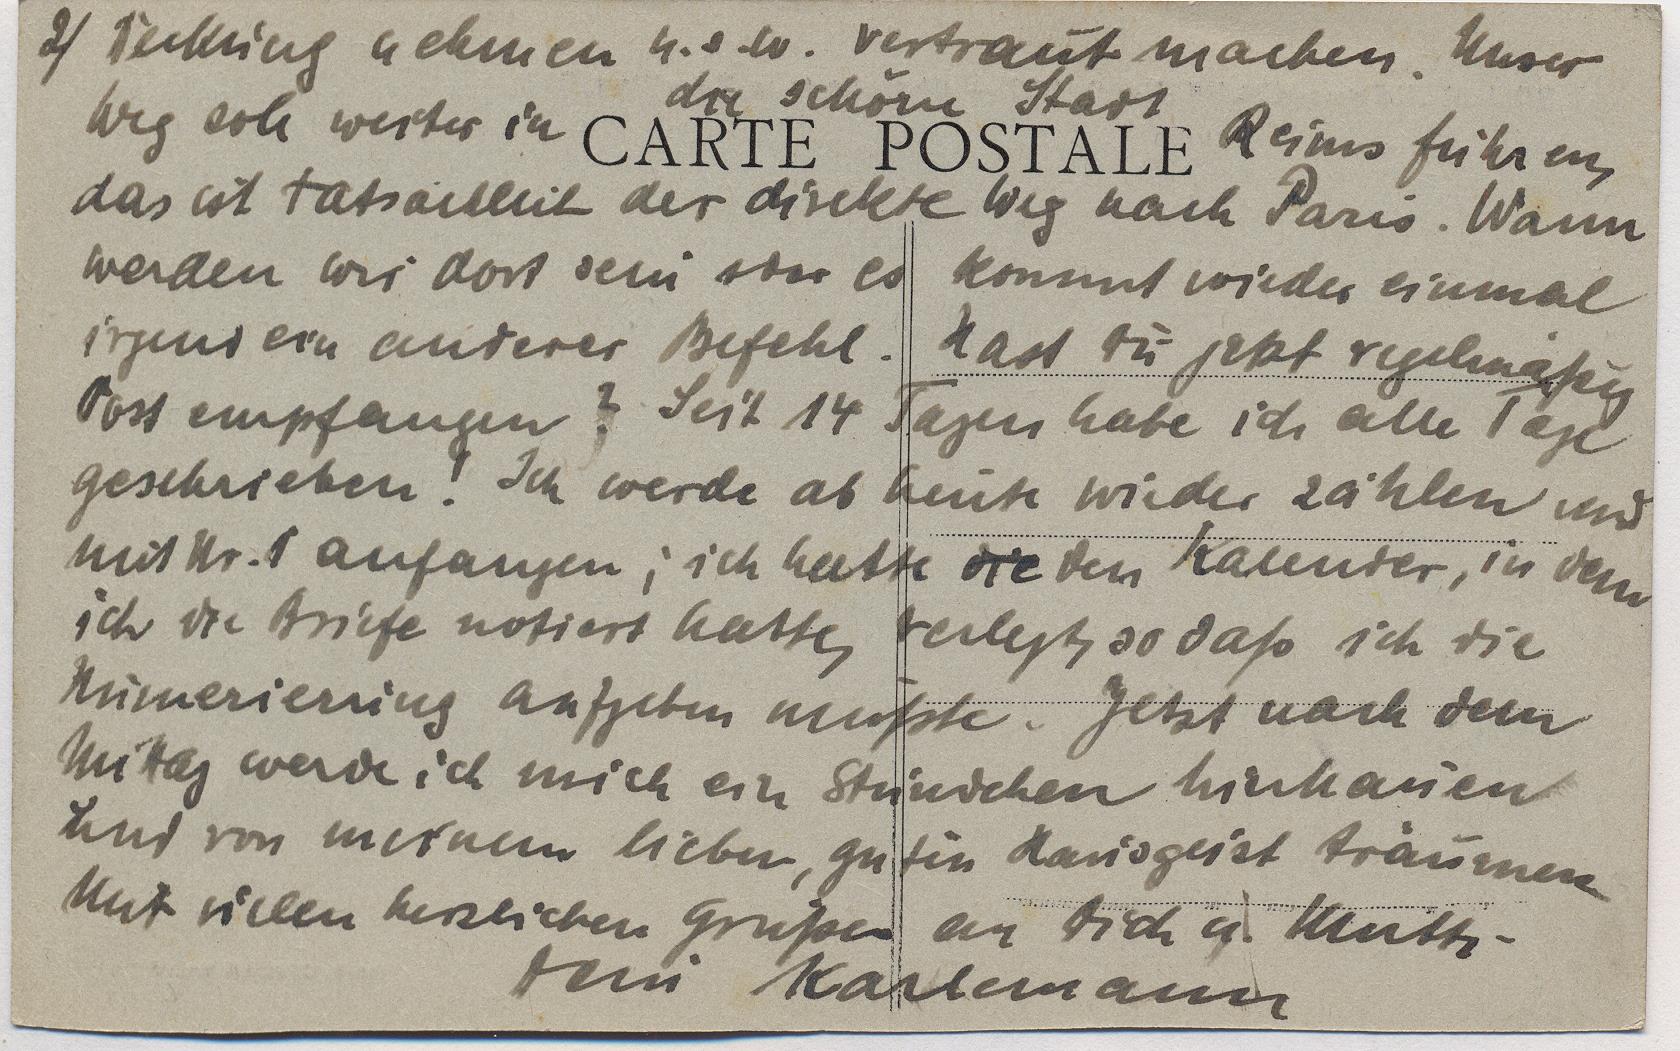 2/ Deckung nehmen u.s.w. vertraut machen. Unser
Weg soll weiter in die schöne Stadt Reims führen,
CARTE POSTALE
das ist tatsächlich der direkte Weg nach Paris. Wann
werden wir dort sein oder es kommt wieder einmal
irgend ein anderer Befehl. Hast Du jetzt regelmäßig
Post empfangen? Seit 14 Tagen habe ich alle Tage
geschrieben! Ich werde ab heute wieder zählen und
mit Nr. 1 anfangen; ich hatte die den Kalender, in dem
ich die Briefe notiert hatte, verlegt, so daß ich die
Numerierung aufgeben mußte. Jetzt nach dem
Mittag werde ich mich ein Stündchen hinhauen
und von meinem lieben, guten Hausgeist träumen
Mit vielen herzlichen Grüßen an Dich u. Mutti-
Dein Karlemann